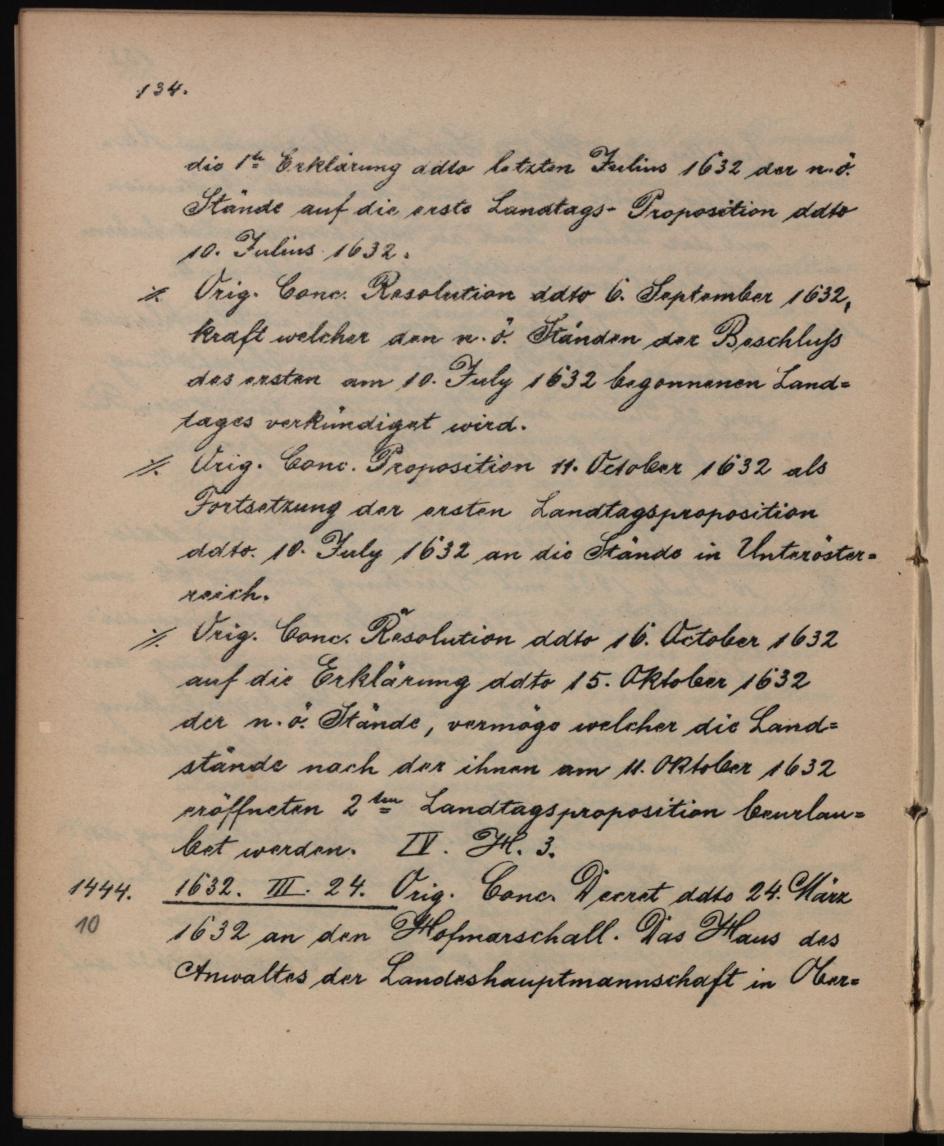 134.
die 1te Erklärung ddto letzten Julius 1632 der n.ö.
Stände auf die erste Landtags- Proposition ddto
10. Julius 1632.
⁒ Orig. Conc. Resolution ddto 6. September 1632,
kraft welcher den n.ö. Ständen der Beschluß
des ersten am 10. July 1632 begonnenen Land=
tages verkündiget wird.
⁒ Orig. Conc. Proposition 11. October 1632 als
Fortsetzung der ersten Landtagsproposition
ddto. 10. July 1632 an die Stände in Unteröster=
reich.
⁒ Orig. Conc. Resolution ddto 16. October 1632
auf die Erklärung ddto 15. Oktober 1632
der n.ö. Stände, vermöge welcher die Land=
stände nach der ihnen am 11. Oktober 1632
eröffneten 2ten Landtagsproposition beurlau=
bet werden. IV. H. 3.
1444. 1632. III. 24. Orig. Conc. Decret ddto 24. März
10 1632 an den Hofmarschall. Das Haus des
Anwaltes der Landeshauptmannschaft in Ober=